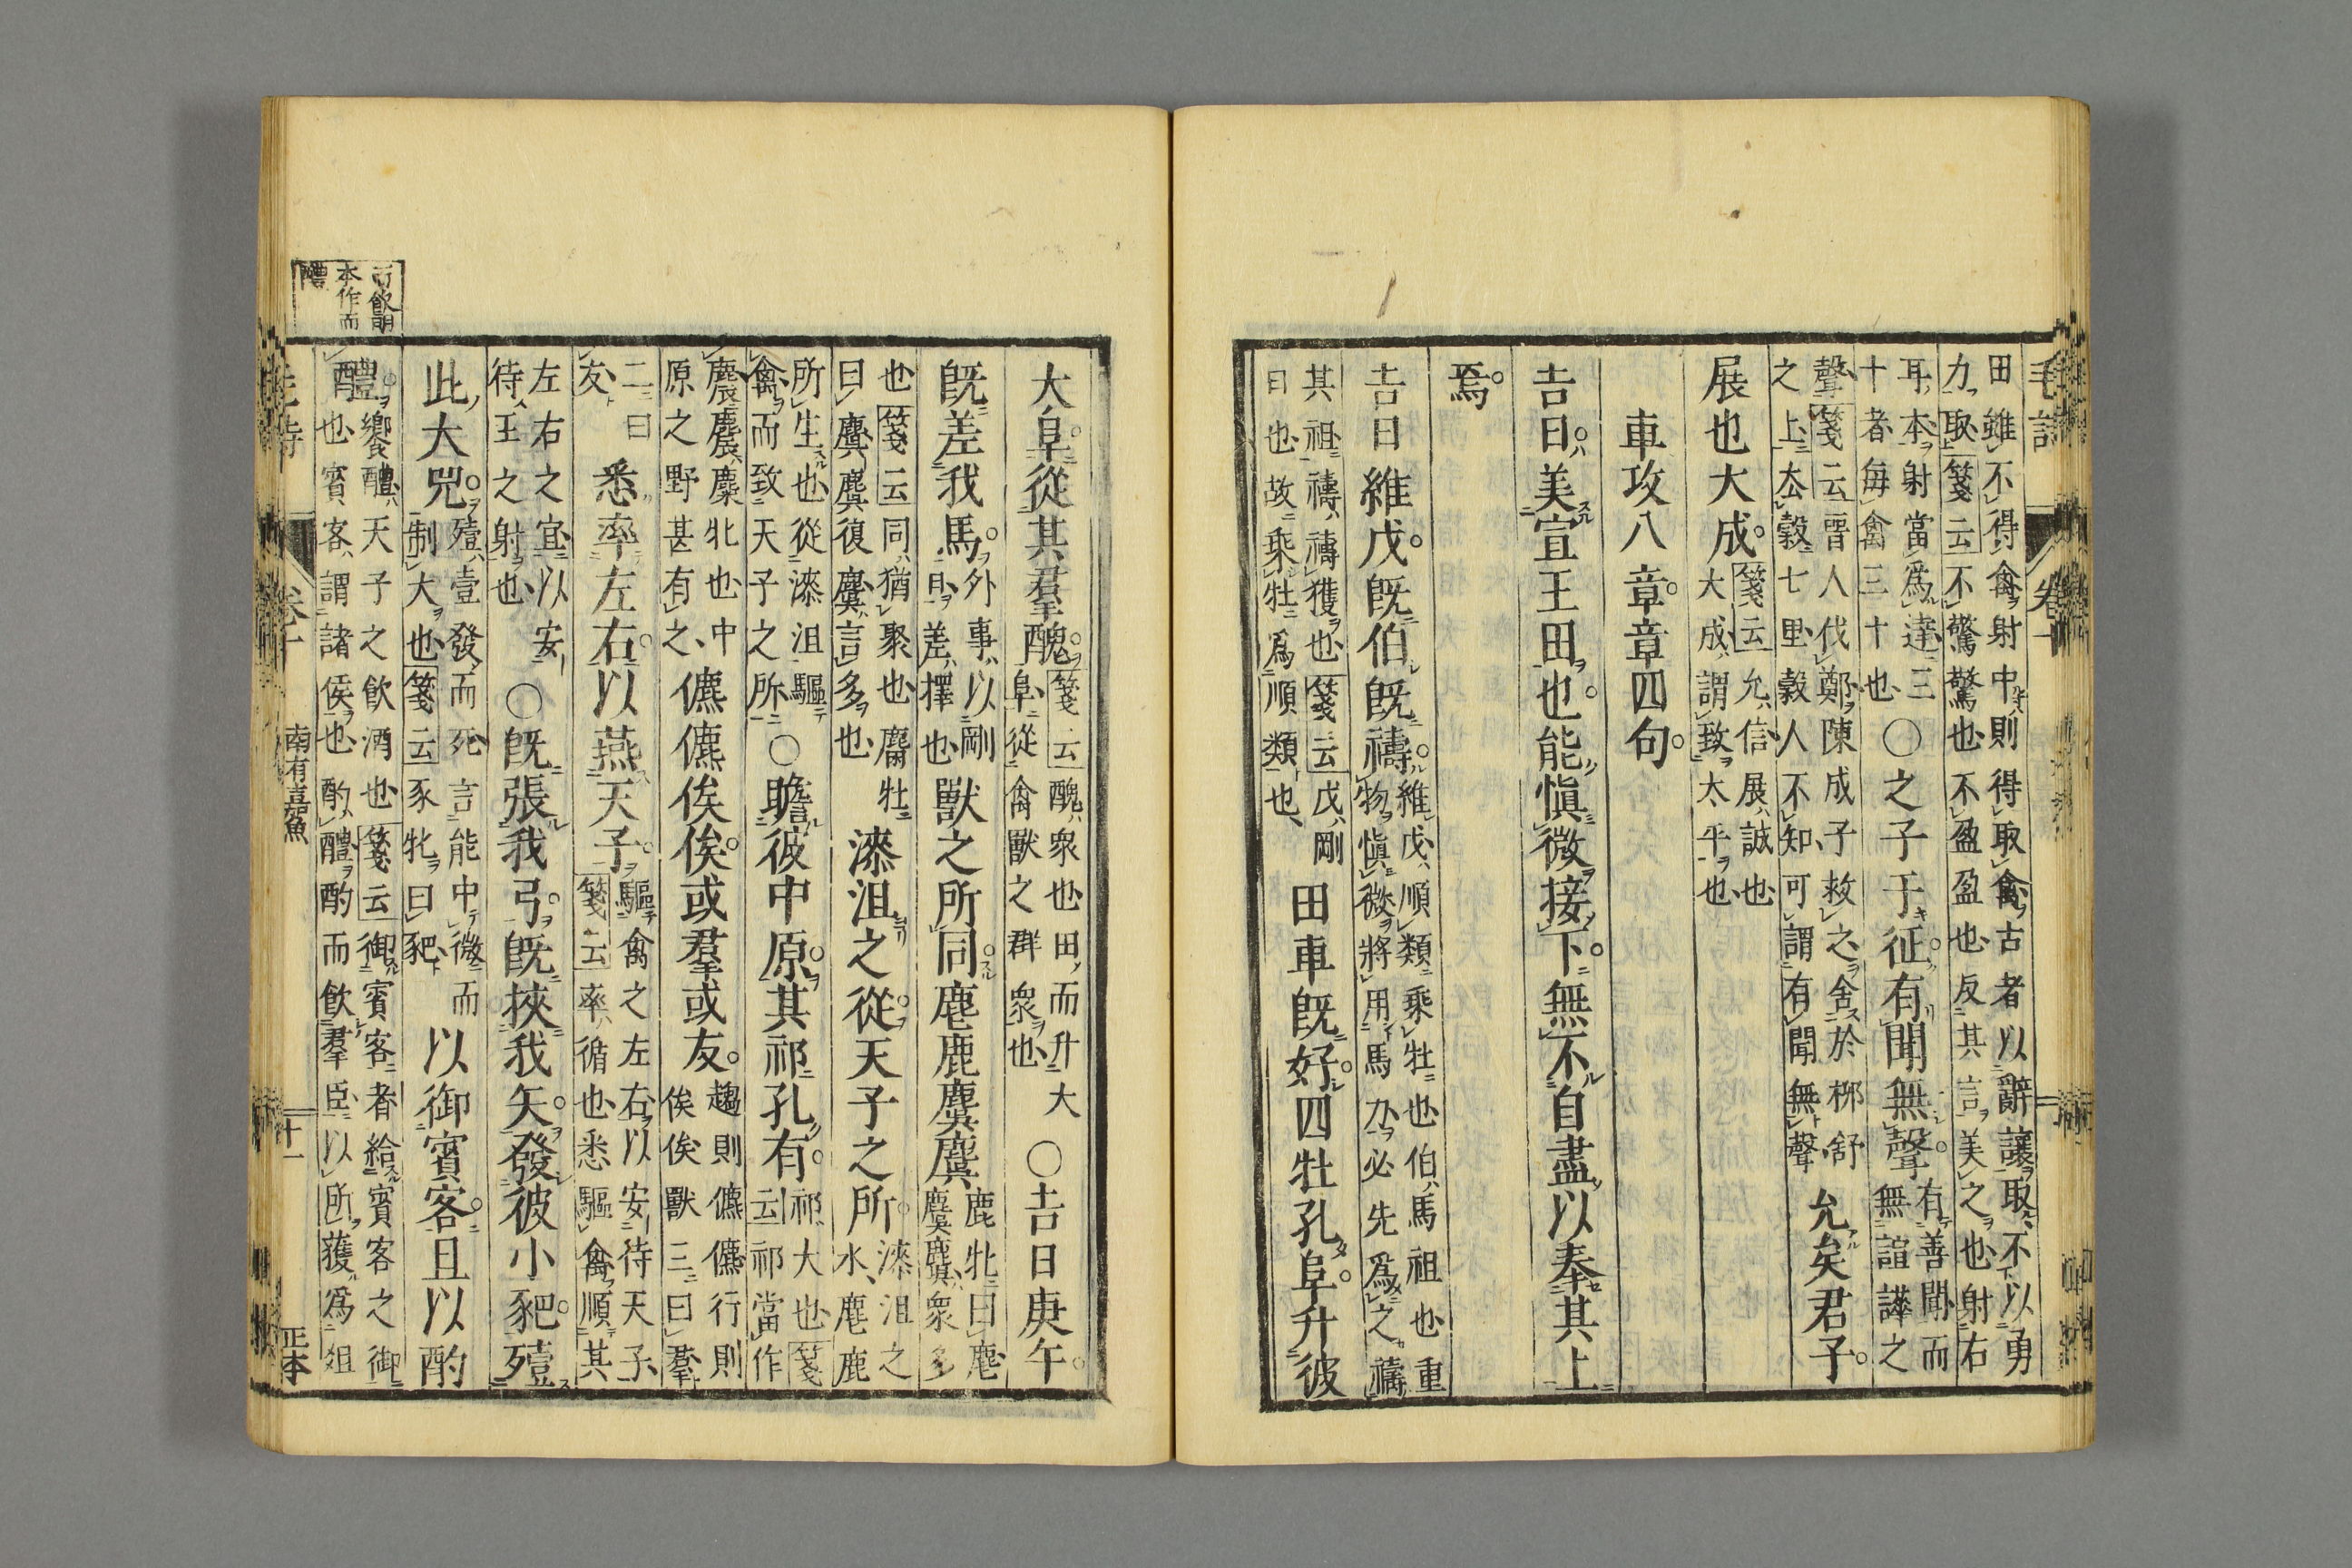 毛詩 卷十
田雖不得禽射中則得取禽古者以辭讓取不以勇
力取箋云不驚驚也不盈盈也反其言美之也射右
耳本射當爲達三
十者毎禽三十也
○之子于征有聞無聲
有善聞而
無諠譁之
聲箋云晉人伐鄭陳成子救之舍於桺舒
之上去穀七里穀人不知可謂有聞無聲
允矣君子
展也大成
箋云允信展誠也
大成謂致太平也
車攻八章章四句
吉日美宣王田也能愼微接下無不自盡以奉其上
焉
吉日維戊既伯既禱
維戊順類乘牡也伯馬祖也重
物愼微將用馬力必先爲之禱
其祖禱禱獲也箋云戊剛
日也故乘牡爲順類也
田車既好四牡孔阜升彼
大阜從其羣醜
箋云醜衆也田而升大
阜從禽獸之群衆也
○吉日庚午
既差我馬
外事以剛
日差擇也
獸之所同麀鹿麌麌
鹿牝曰麀
麌麌衆多
也箋云同猶聚也麕牡
曰麌麌復麌言多也
漆沮之從天子之所
漆沮之
水麀鹿
所生也從漆沮驅
禽而致天子之所
○瞻彼中原其祁孔有
祁大也箋
云祁當作
麎麎麋牝也中
原之野甚有之
儦儦俟俟或羣或友
趨則儦儦行則
俟俟獸三曰羣
二曰
友
悉率左右以燕天子
驅禽之左右以安待天子
箋云率循也悉驅禽順其
左右之宜以安
待王之射也
○既張我弓既挾我矢發彼小豝殪
此大兕
殪壹發而死言能中微而
制大也箋云豕牝曰豝
以御賓客且以酌
醴
饗醴天子之飲酒也箋云御賓客者給賓客之御
也賓客謂諸侯也酌醴酌而飲羣臣以所獲爲俎
而飲明
本作而
醴
毛詩 卷十 南有嘉魚 十一 正本